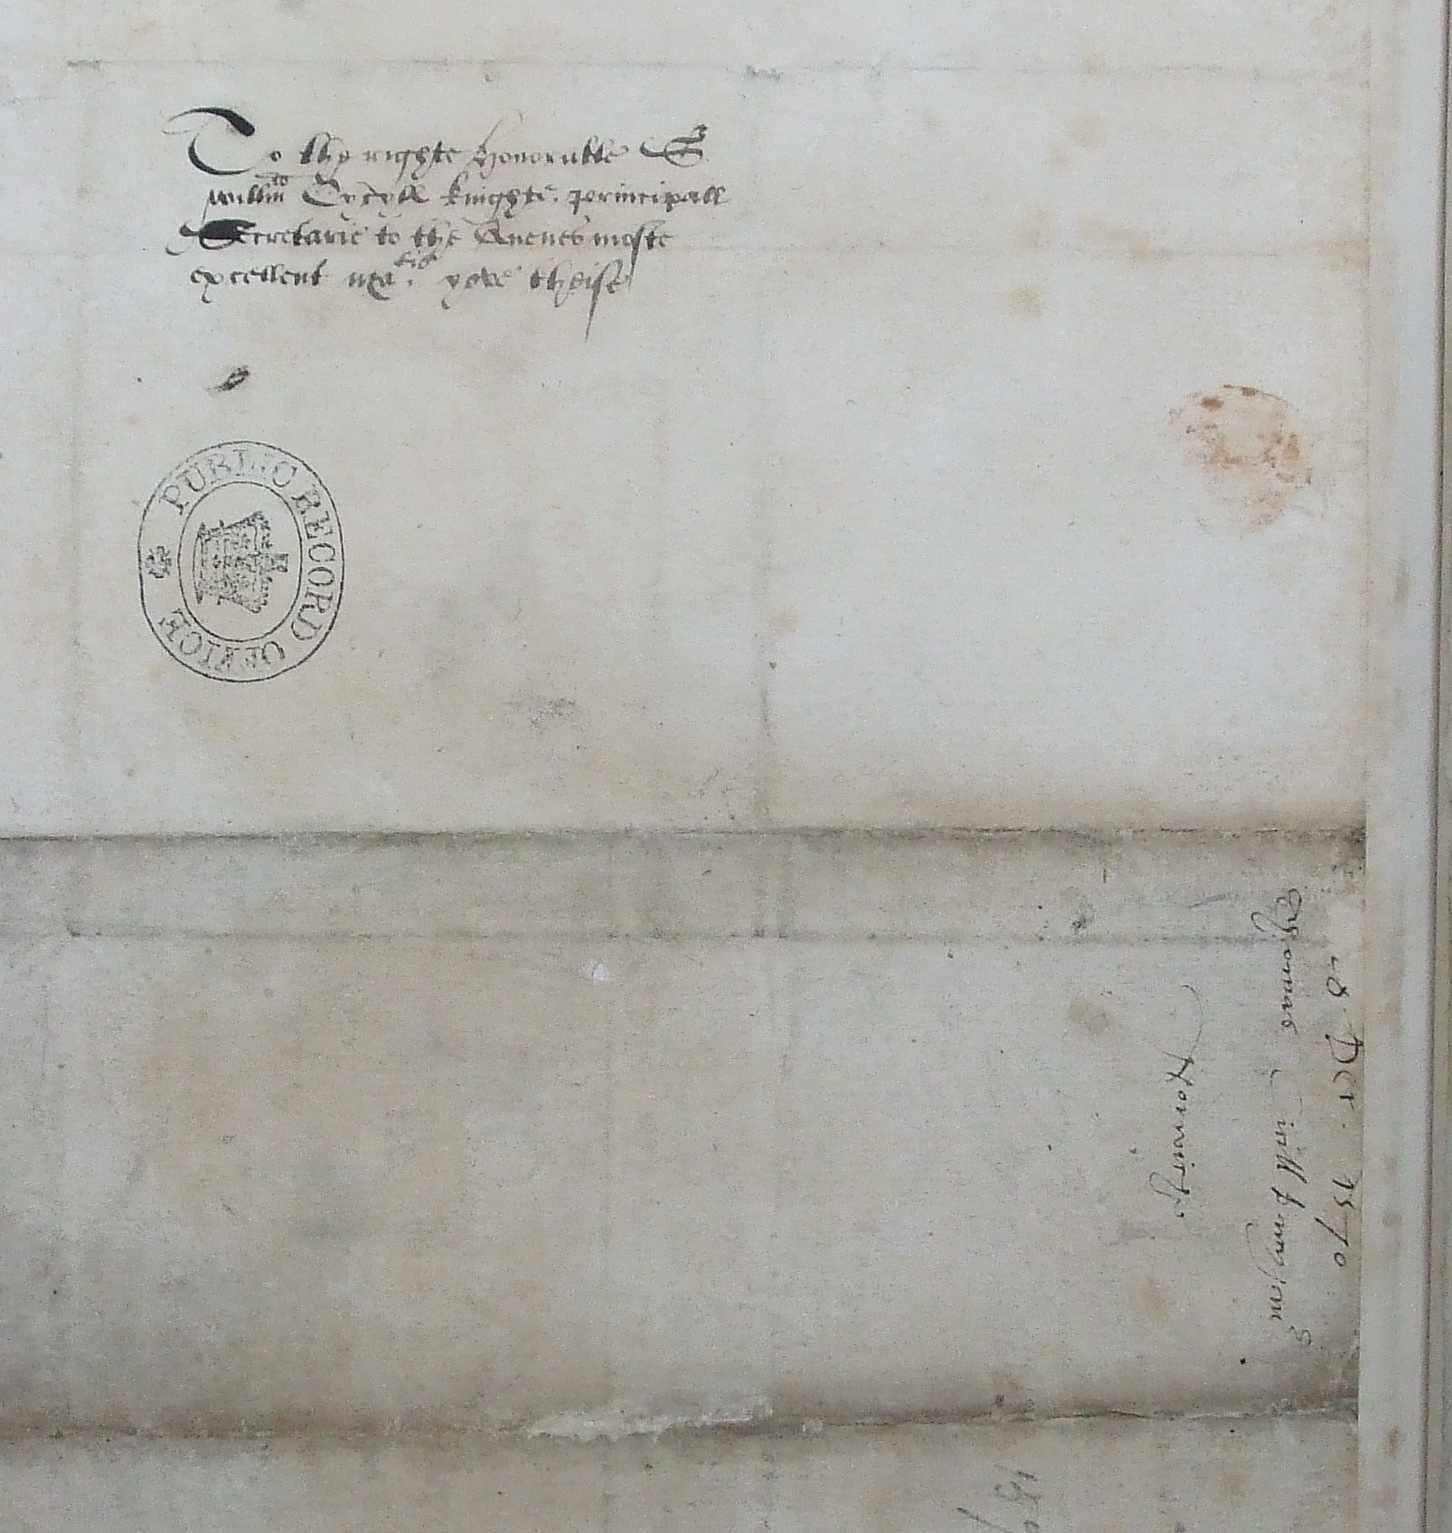 To the righte honorable Sr
Willm Cycyll knighte principall
Secretarie to the Quenes moste
excellent matie yeve theise
PUBLIC RECORD OFFICE
28 Decr 1570
Norwich